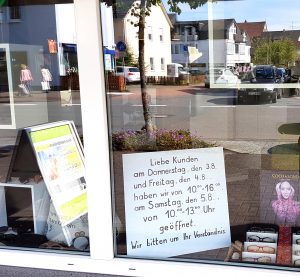 Liebe Kunden
am Donnerstag, den 3.8.
und Freitag, den 4.8.
haben wir von 10⁰⁰-16⁰⁰
am Samstag, den 5.8.
von 10⁰⁰-13⁰⁰ Uhr
geöffnet.
Wir bitten um Ihr Verständnis.